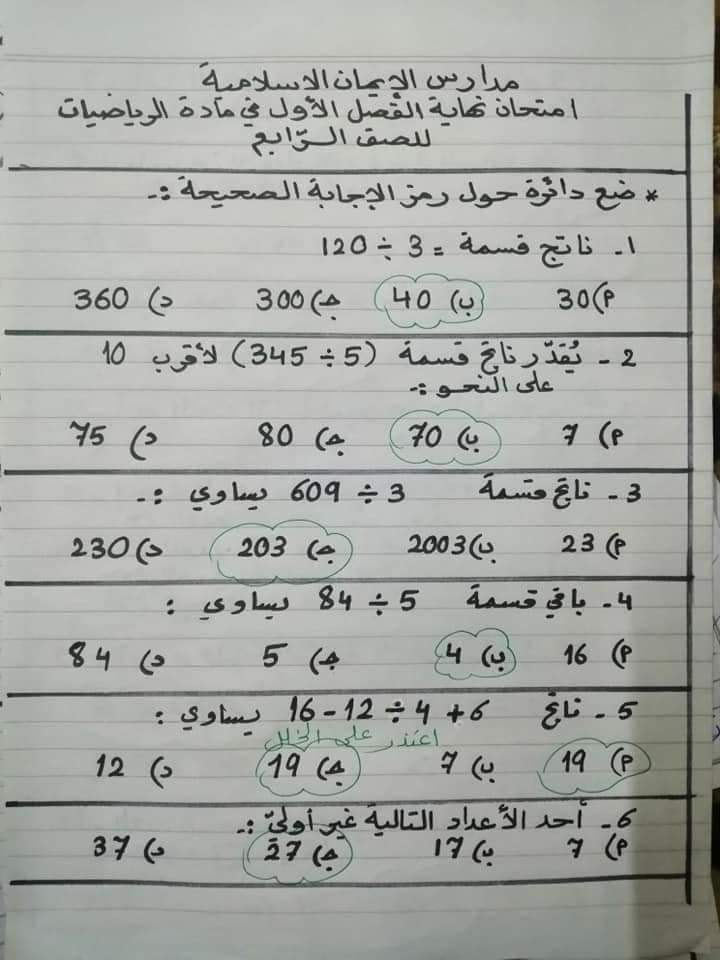 مدارس الإيمان الاسلامية
امتحان نهاية الفصل الأول في مادة الرياضيات
للصف الرّابع
* ضع دائرة حول رمز الإجابة الصحيحة :-
1- ناتج قسمة = 3 ÷ 120
أ) 30 ب) 40 جـ) 300 د) 360
2- يُقدّر ناتج قسمة (5 ÷ 345) لأقرب 10
على النحو :-
أ) 7 ب) 70 جـ) 80 د) 75
3- ناتج قسمة 3 ÷ 609 يساوي :-
أ) 23 ب) 2003 جـ) 203 د) 230
4- باقي قسمة 5 ÷ 84 يساوي :
أ) 16 ب) 4 جـ) 5 د) 84
5- ناتج 16 - 12 ÷ 4 + 6 يساوي :
اعتذر على الخلل
أ) 19 ب) 7 جـ) 19 د) 12
6- أحد الأعداد التالية غير أوليّ :-
أ) 7 ب) 17 جـ) 27 د) 37